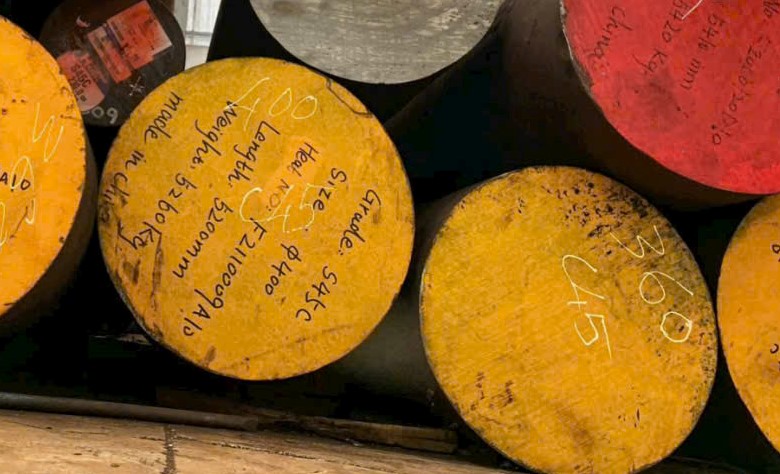 400
C45
Grade: S45C
Size: φ400
Heat NO: F2110009A10
Length: 5200mm
Weight: 5260kg
made in
360
C45
A10
5416 mm
5420 kg
china
60